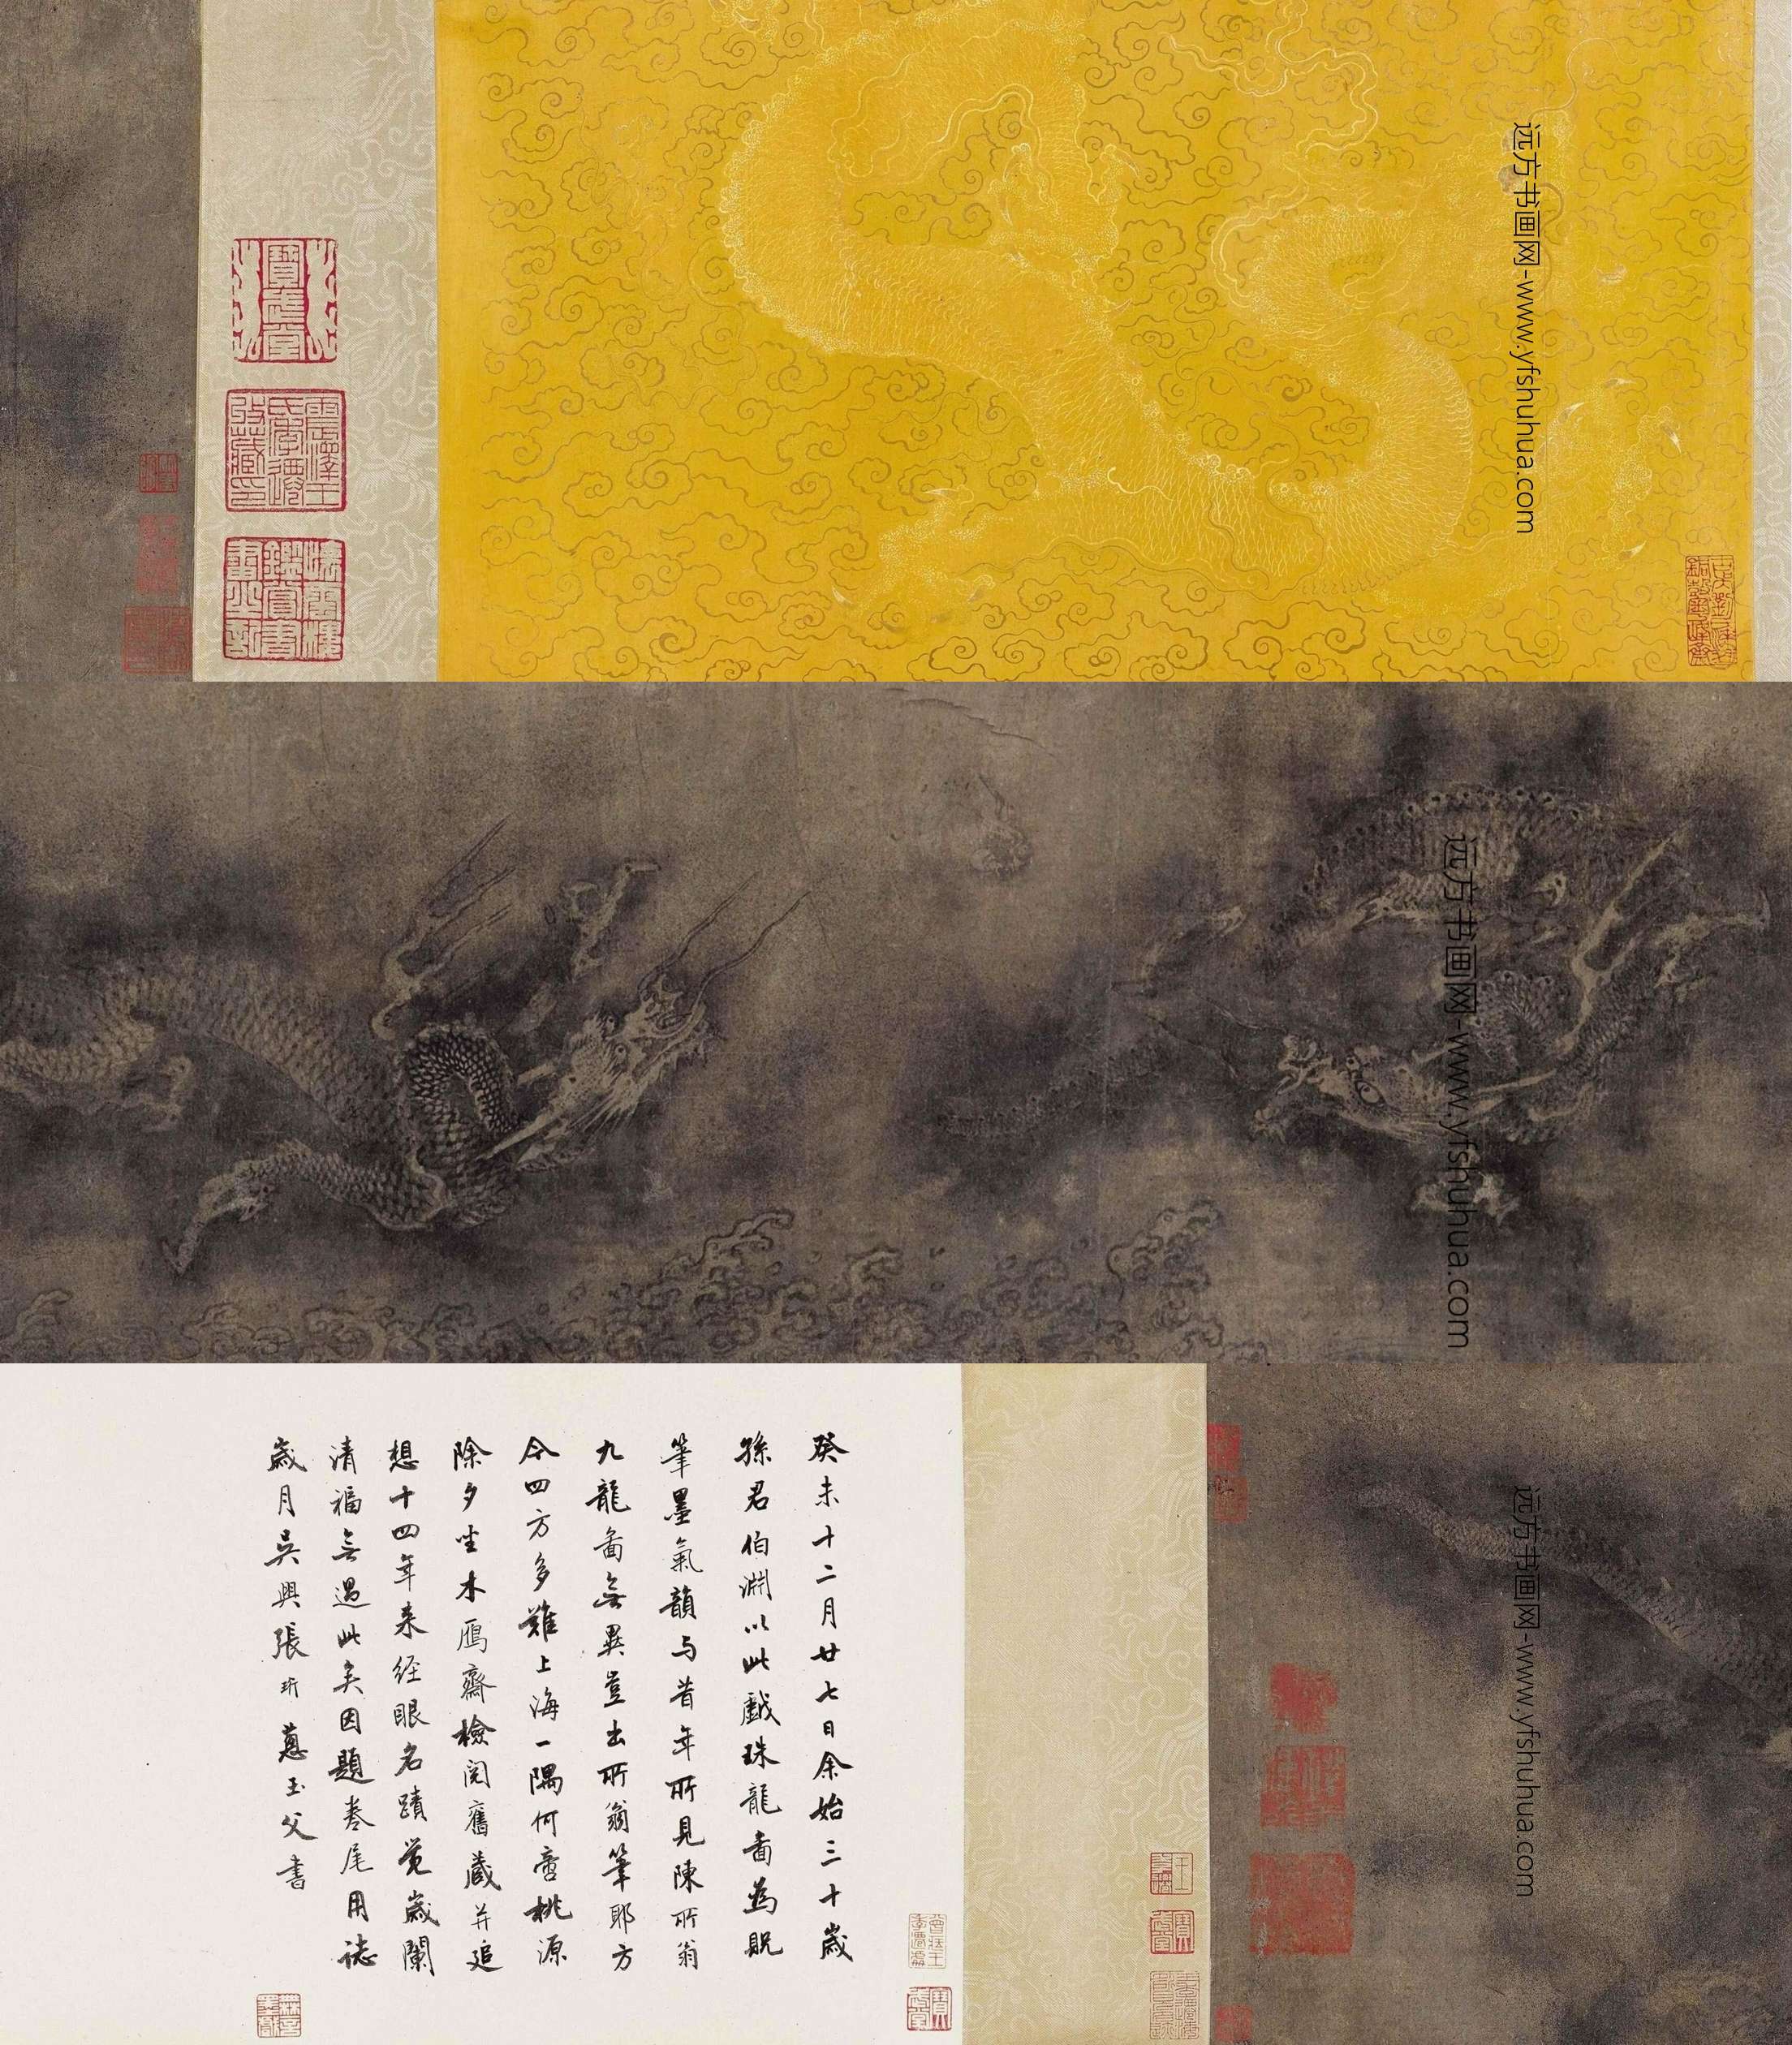 远方书画网-www.yfshuhua.com
寶米堂
震澤王
氏季遷
攷藏印
鑑賞書
畫之記
远方书画网-www.yfshuhua.com
远方书画网-www.yfshuhua.com
癸未十二月廿七日余始三十歲
孫君伯淵以此戲珠龍畵為貺
筆墨氣韻与昔年所見陳所翁
九龍畵無異豈出所翁筆耶方
今四方多難上海一隅何啻桃源
除夕坐木鴈齋檢閱舊藏并追
想十四年来經眼名蹟覺歲闌
清福無過此矣因題卷尾用誌
歲月吳興張珩蔥玉父書